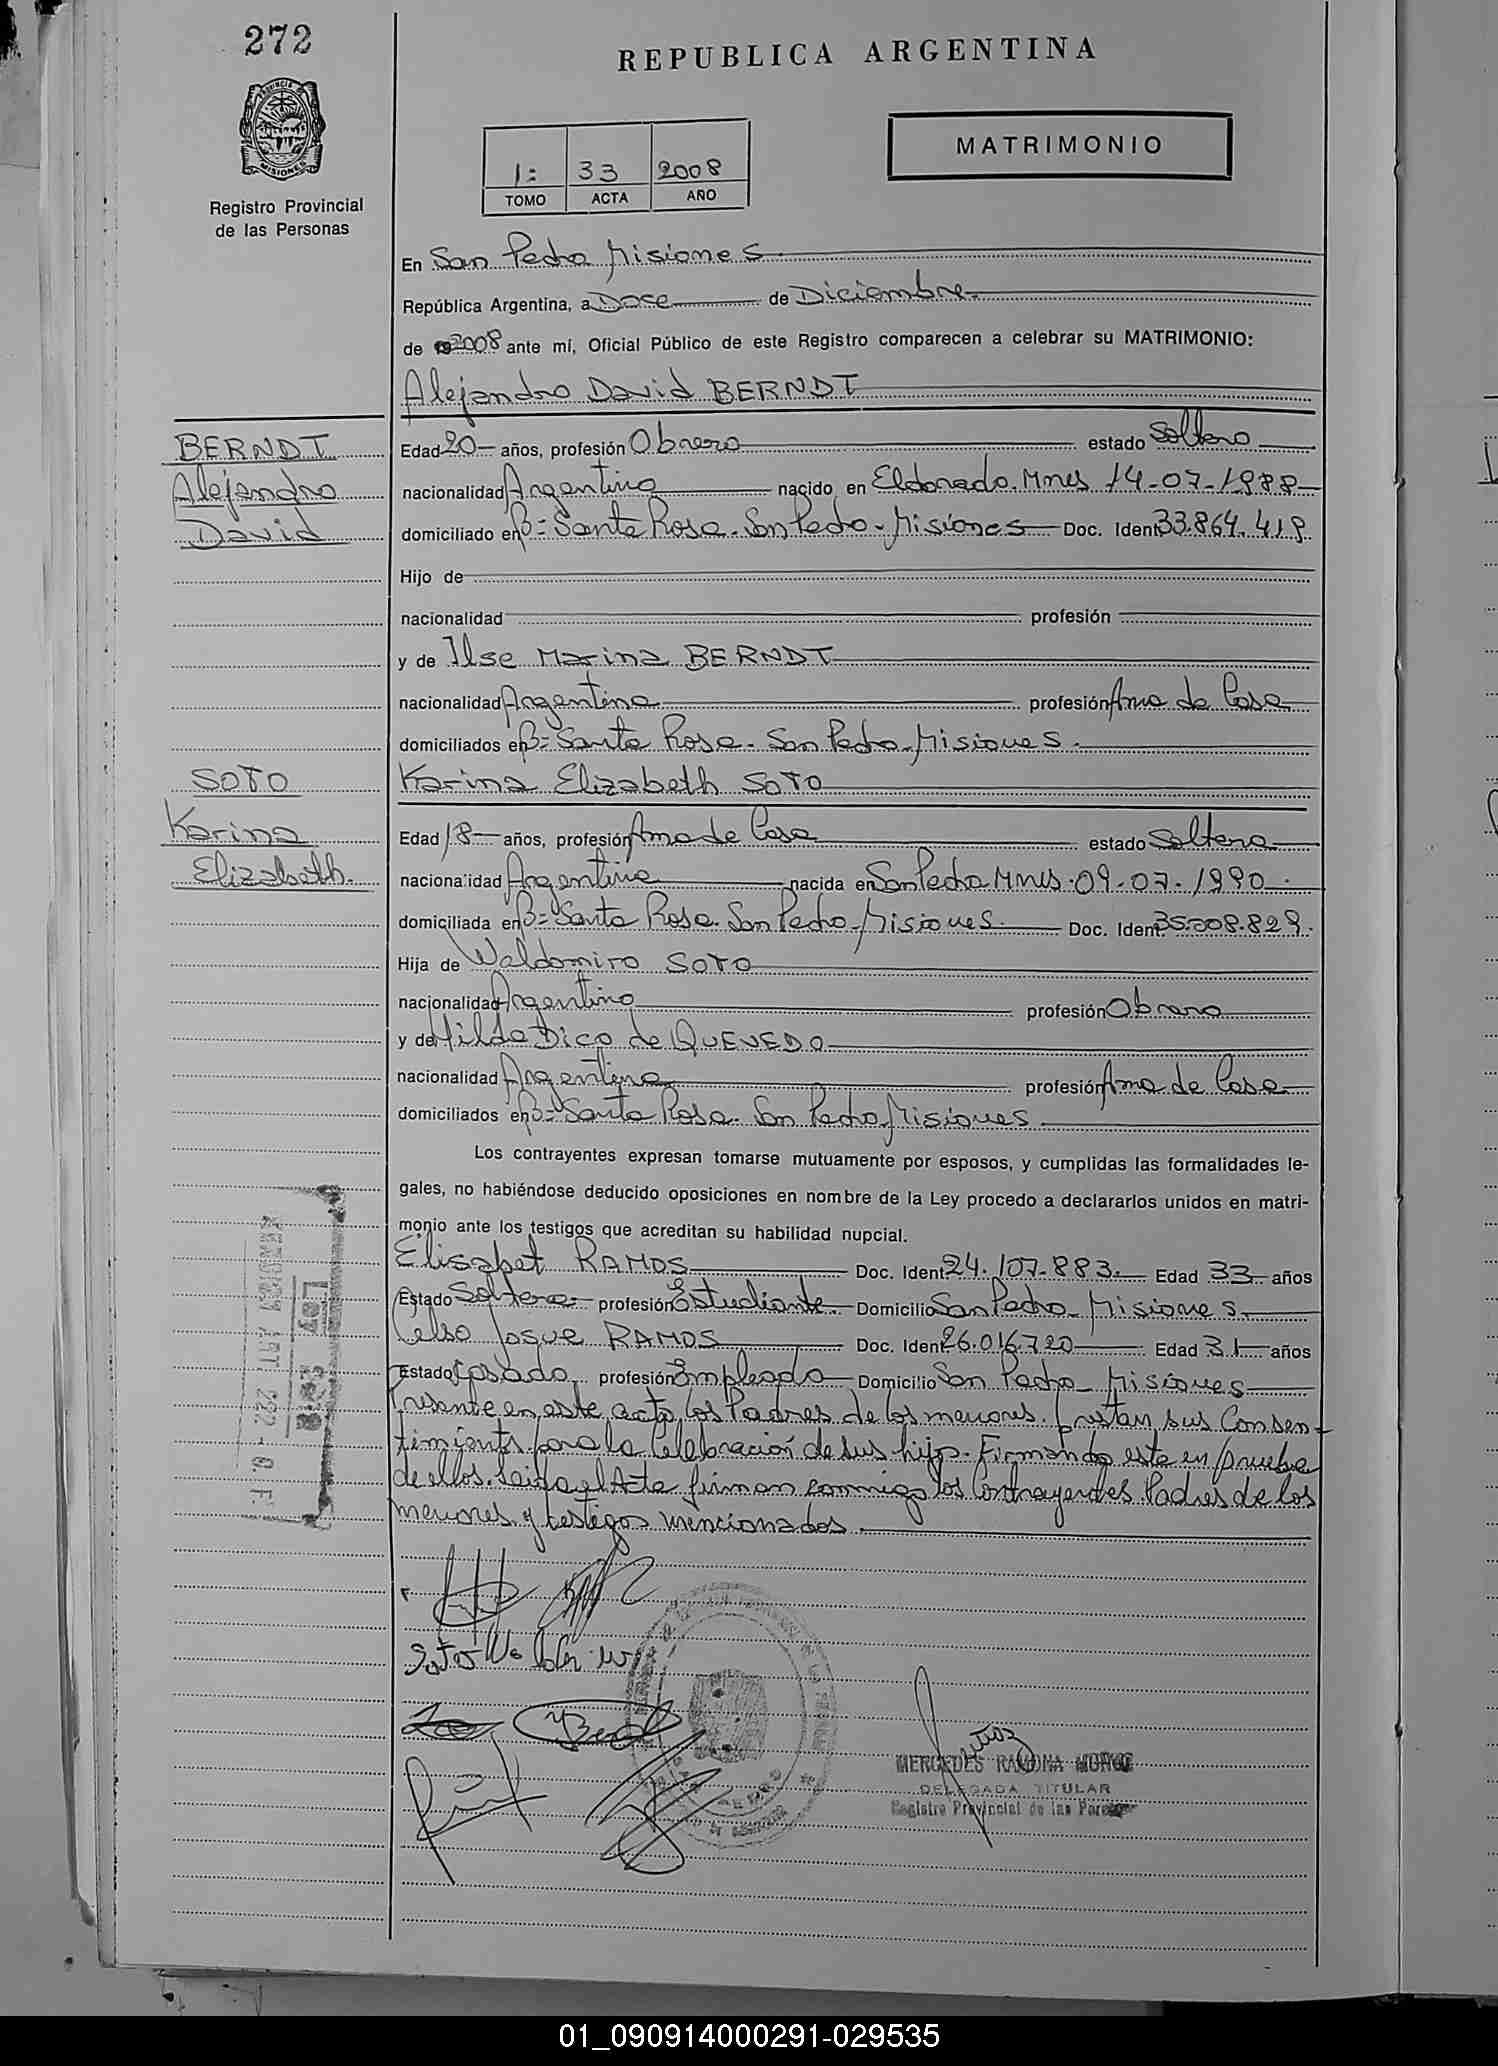 272
REPUBLICA ARGENTINA
MATRIMONIO
1: 33 2008
TOMO ACTA AÑO
PROVINCIA DE MISIONES
Registro Provincial
de las Personas
En San Pedro Misiones
República Argentina, a Doce de Diciembre
de 2008 ante mí, Oficial Público de este Registro comparecen a celebrar su MATRIMONIO:
Alejandro David BERNDT
BERNDT
Alejandro
David
Edad 20 años, profesión Obrero estado Soltero
nacionalidad Argentino nacido en Eldorado. Mnes 14-07-1988
domiciliado en B= Santa Rosa. San Pedro - Misiones Doc. Ident. 33.864.419
Hijo de
nacionalidad profesión
y de Ilse Marina BERNDT
nacionalidad Argentina profesión Ama de Casa
domiciliados en B= Santa Rosa. San Pedro - Misiones.
SOTO
Karina
Elizabeth.
Karina Elizabeth SOTO
Edad 18 años, profesión Ama de Casa estado Soltera
nacionalidad Argentina nacida en San Pedro Mnes. 09-07-1990.
domiciliada en B= Santa Rosa. San Pedro - Misiones. Doc. Ident. 35.008.829.
Hija de Waldomiro SOTO
nacionalidad Argentino profesión Obrero
y de Hilda Dico de QUEVEDO
nacionalidad Argentina profesión Ama de Casa
domiciliados en B= Santa Rosa. San Pedro Misiones
Los contrayentes expresan tomarse mutuamente por esposos, y cumplidas las formalidades le-
gales, no habiéndose deducido oposiciones en nombre de la Ley procedo a declararlos unidos en matri-
monio ante los testigos que acreditan su habilidad nupcial.
Elisabet RAMOS Doc. Ident. 24.107.883. Edad 33 años
Estado Soltera profesión Estudiante Domicilio San Pedro - Misiones.
Celso Josue RAMOS Doc. Ident. 26.016.720 Edad 31 años
Estado Casado profesión Empleado Domicilio San Pedro - Misiones
Presente en este acto, los Padres de los menores. Prestan sus Consen-
timiento para la Celebración de sus hijos. Firmando este en prueba
de ellos. Leida el Acta firman conmigo los Contrayentes Padres de los
menores y testigos mencionados.
Ley
ART. 222 - C.F.
MERCEDES RAMONA
DELEGADA TITULAR
Registro Provincial de las Personas
01_090914000291-029535